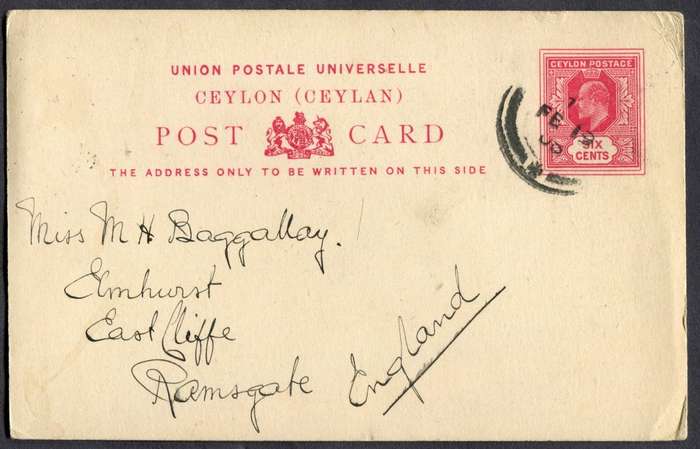 UNION POSTALE UNIVERSELLE
CEYLON (CEYLAN)
POST CARD
THE ADDRESS ONLY TO BE WRITTEN ON THIS SIDE
CEYLON POSTAGE
SIX
CENTS
FE 19
Miss M H Baggallay.
Elmhurst
East Cliffe
Ramsgate
England